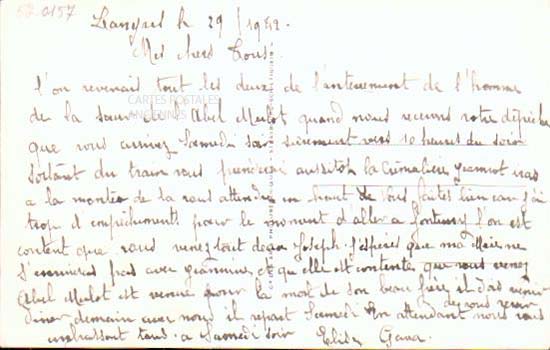 Langres le 29 / 1942.
Mes chers Tous.
l'on revenait tout les deux de l'enterrement de l'homme
de la sœur de Abel Mulot quand nous recumes votre dépêche
CARTES POSTALES
ANCIENNES
que vous arrivez Samedi soir surement vers 10 heures du soir
sortant du train vous prenderai aussitot la Crémaliere Jeannot
a la montée de la vous attendre en haut de vous faites bien car j'ai
trop d'empechement pour le moment d'aller a l'on est
content que vous venez tout deux Joseph. J'espère que ma Mère ne
s'ennuieras pas avec Jeannine et qu'elle est contente que vous venez
Abel Mulot est venue pour la mort de son beau frère il dois venir
diner demain avec nous il repart Samedi En attendant de vous revoir nous vous
embrassont tous a Samedi soir Elise Gana.